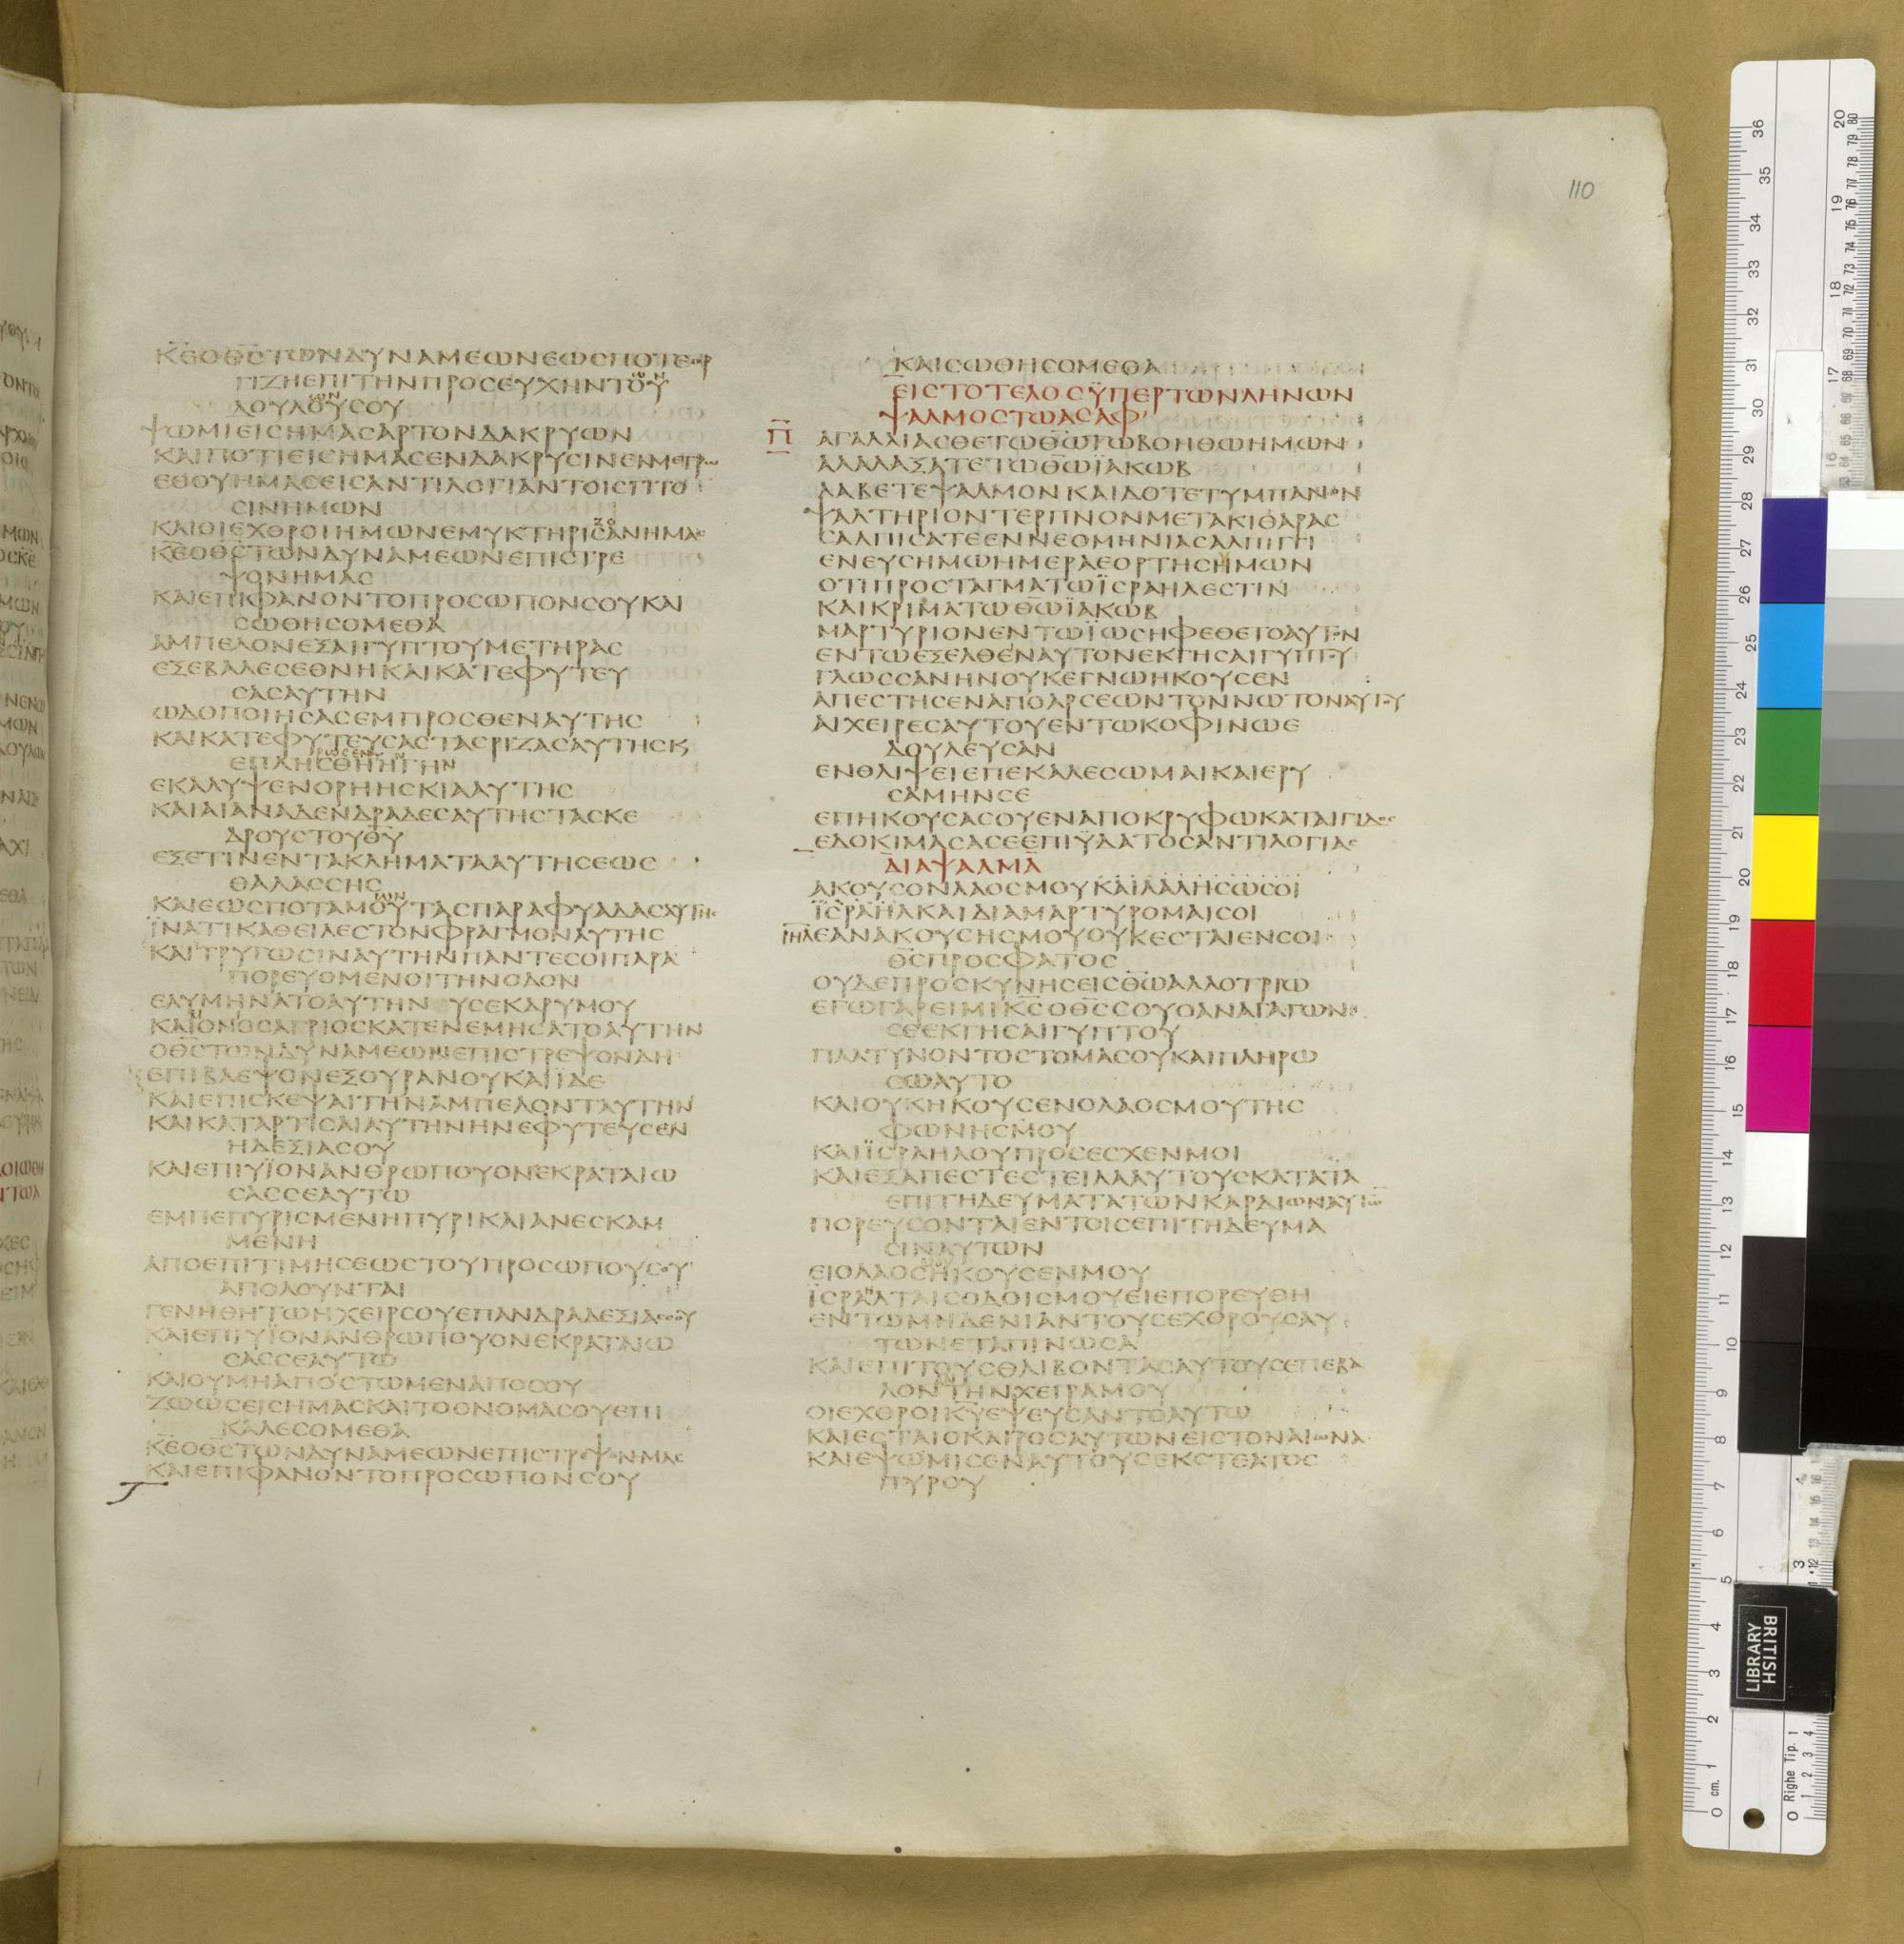 110
ΚΕΟΘΣΤΩΝΔΥΝΑΜΕΩΝΕΩΣΠΟΤΕΟΡ
ΓΙΖΗΕΠΙΤΗΝΠΡΟΣΕΥΧΗΝΤΟΥ
ΔΟΥΛΟΥΣΟΥ
ΨΩΜΙΕΙΣΗΜΑΣΑΡΤΟΝΔΑΚΡΥΩΝ
ΚΑΙΠΟΤΙΕΙΣΗΜΑΣΕΝΔΑΚΡΥΣΙΝΕΝΜΕΤΡΩ
ΕΘΟΥΗΜΑΣΕΙΣΑΝΤΙΛΟΓΙΑΝΤΟΙΣΓΙΤΟ
ΣΙΝΗΜΩΝ
ΚΑΙΟΙΕΧΘΡΟΙΗΜΩΝΕΜΥΚΤΗΡΙΣΑΝΗΜΑΣ
ΚΕΟΘΣΤΩΝΔΥΝΑΜΕΩΝΕΠΙΣΤΡΕ
ΨΟΝΗΜΑΣ
ΚΑΙΕΠΙΦΑΝΟΝΤΟΠΡΟΣΩΠΟΝΣΟΥΚΑΙ
ΣΩΘΗΣΟΜΕΘΑ
ΑΜΠΕΛΟΝΕΞΑΙΓΥΠΤΟΥΜΕΤΗΡΑΣ
ΕΞΕΒΑΛΕΣΕΘΝΗΚΑΙΚΑΤΕΦΥΤΕΥ
ΣΑΣΑΥΤΗΝ
ΩΔΟΠΟΙΗΣΑΣΕΜΠΡΟΣΘΕΝΑΥΤΗΣ
ΚΑΙΚΑΤΕΦΥΤΕΥΣΑΣΤΑΣΡΙΖΑΣΑΥΤΗΣΚ
ΕΠΛΗΣΘΗΗΓΗΝ
ΕΚΑΛΥΨΕΝΟΡΗΗΣΚΙΑΑΥΤΗΣ
ΚΑΙΑΙΑΝΑΔΕΝΔΡΑΔΕΣΑΥΤΗΣΤΑΣΚΕ
ΔΡΟΥΣΤΟΥΘΥ
ΕΞΕΤΙΝΕΝΤΑΚΛΗΜΑΤΑΑΥΤΗΣΕΩΣ
ΘΑΛΑΣΣΗΣ
ΚΑΙΕΩΣΠΟΤΑΜΟΥΤΑΣΠΑΡΑΦΥΑΔΑΣΑΥΤΗΣ
ΪΝΑΤΙΚΑΘΕΙΛΕΣΤΟΝΦΡΑΓΜΟΝΑΥΤΗΣ
ΚΑΙΤΡΥΓΩΣΙΝΑΥΤΗΝΠΑΝΤΕΣΟΙΠΑΡΑ
ΠΟΡΕΥΟΜΕΝΟΙΤΗΝΟΔΟΝ
ΕΛΥΜΗΝΑΤΟΑΥΤΗΝ ΥΣΕΚΔΡΥΜΟΥ
ΚΑΙΟΝΟΣΑΓΡΙΟΣΚΑΤΕΝΕΜΗΣΑΤΟΑΥΤΗΝ
ΟΘΣΤΩΝΔΥΝΑΜΕΩΝΕΠΙΣΤΡΕΨΟΝΔΗ
ΕΠΙΒΛΕΨΟΝΕΞΟΥΡΑΝΟΥΚΑΙΪΔΕ
ΚΑΙΕΠΙΣΚΕΨΑΙΤΗΝΑΜΠΕΛΟΝΤΑΥΤΗΝ
ΚΑΙΚΑΤΑΡΤΙΣΑΙΑΥΤΗΝΗΝΕΦΥΤΕΥΣΕΝ
ΗΔΕΞΙΑΣΟΥ
ΚΑΙΕΠΙΥΪΟΝΑΝΘΡΩΠΟΥΟΝΕΚΡΑΤΑΙΩ
ΣΑΣΣΕΑΥΤΩ
ΕΜΠΕΠΥΡΙΣΜΕΝΗΠΥΡΙΚΑΙΑΝΕΣΚΑΜ
ΜΕΝΗ
ΑΠΟΕΠΙΤΙΜΗΣΕΩΣΤΟΥΠΡΟΣΩΠΟΥΣΟΥ
ΑΠΟΛΟΥΝΤΑΙ
ΓΕΝΗΘΗΤΩΗΧΕΙΡΣΟΥΕΠΑΝΔΡΑΔΕΞΙΑΣΣΟΥ
ΚΑΙΕΠΙΥΪΟΝΑΝΘΡΩΠΟΥΟΝΕΚΡΑΤΑΙΩ
ΣΑΣΣΕΑΥΤΩ
ΚΑΙΟΥΜΗΑΠΟΣΤΩΜΕΝΑΠΟΣΟΥ
ΖΩΩΣΕΙΣΗΜΑΣΚΑΙΤΟΟΝΟΜΑΣΟΥΕΠΙ
ΚΑΛΕΣΟΜΕΘΑ
ΚΕΟΘΣΤΩΝΔΥΝΑΜΕΩΝΕΠΙΣΤΡΕΨΟΝΗΜΑΣ
ΚΑΙΕΠΙΦΑΝΟΝΤΟΠΡΟΣΩΠΟΝΣΟΥ
ΚΑΙΣΩΘΗΣΟΜΕΘΑ
ΕΙΣΤΟΤΕΛΟΣΫΠΕΡΤΩΝΛΗΝΩΝ
ΨΑΛΜΟΣΤΩΑΣΑΦ
Π ΑΓΑΛΛΙΑΣΘΕΤΩΘΩΤΩΒΟΗΘΩΗΜΩΝ
ΑΛΑΛΑΞΑΤΕΤΩΘΩΪΑΚΩΒ
ΛΑΒΕΤΕΨΑΛΜΟΝΚΑΙΔΟΤΕΤΥΜΠΑΝΟΝ
ΨΑΛΤΗΡΙΟΝΤΕΡΠΝΟΝΜΕΤΑΚΙΘΑΡΑΣ
ΣΑΛΠΙΣΑΤΕΕΝΝΕΟΜΗΝΙΑΣΑΛΠΙΓΓΙ
ΕΝΕΥΣΗΜΩΗΜΕΡΑΕΟΡΤΗΣΗΜΩΝ
ΟΤΙΠΡΟΣΤΑΓΜΑΤΩΪΣΡΑΗΛΕΣΤΙΝ
ΚΑΙΚΡΙΜΑΤΩΘΩΪΑΚΩΒ
ΜΑΡΤΥΡΙΟΝΕΝΤΩΪΩΣΗΦΕΘΕΤΟΑΥΤΟΝ
ΕΝΤΩΕΞΕΛΘΕΝΑΥΤΟΝΕΚΓΗΣΑΙΓΥΠΤΟΥ
ΓΛΩΣΣΑΝΗΝΟΥΚΕΓΝΩΗΚΟΥΣΕΝ
ΑΠΕΣΤΗΣΕΝΑΠΟΑΡΣΕΩΝΤΟΝΝΩΤΟΝΑΥΤΟΥ
ΑΙΧΕΙΡΕΣΑΥΤΟΥΕΝΤΩΚΟΦΙΝΩΕ
ΔΟΥΛΕΥΣΑΝ
ΕΝΘΛΙΨΕΙΕΠΕΚΑΛΕΣΩΜΑΙΚΑΙΕΡΥ
ΣΑΜΗΝΣΕ
ΕΠΗΚΟΥΣΑΣΟΥΕΝΑΠΟΚΡΥΦΩΚΑΤΑΙΓΙΔΟΣ
ΕΔΟΚΙΜΑΣΑΣΕΕΠΙΫΔΑΤΟΣΑΝΤΙΛΟΓΙΑΣ
ΔΙΑΨΑΛΜΑ
ΑΚΟΥΣΟΝΛΑΟΣΜΟΥΚΑΙΛΑΛΗΣΩΣΟΙ
ΪΣΡΑΗΛΚΑΙΔΙΑΜΑΡΤΥΡΟΜΑΙΣΟΙ
ΙΗΛΕΑΝΑΚΟΥΣΗΣΜΟΥΟΥΚΕΣΤΑΙΕΝΣΟΙ
ΘΣΠΡΟΣΦΑΤΟΣ
ΟΥΔΕΠΡΟΣΚΥΝΗΣΕΙΣΘΩΑΛΛΟΤΡΙΩ
ΕΓΩΓΑΡΕΙΜΙΚΣΟΘΣΣΟΥΟΑΝΑΓΑΓΩΝ
ΣΕΕΚΓΗΣΑΙΓΥΠΤΟΥ
ΠΛΑΤΥΝΟΝΤΟΣΤΟΜΑΣΟΥΚΑΙΠΛΗΡΩ
ΣΩΑΥΤΟ
ΚΑΙΟΥΚΗΚΟΥΣΕΝΟΛΑΟΣΜΟΥΤΗΣ
ΦΩΝΗΣΜΟΥ
ΚΑΙΪΣΡΑΗΛΟΥΠΡΟΣΕΣΧΕΝΜΟΙ
ΚΑΙΕΞΑΠΕΣΤΕΣΤΕΙΛΑΑΥΤΟΥΣΚΑΤΑΤΑ
ΕΠΙΤΗΔΕΥΜΑΤΑΤΩΝΚΑΡΔΙΩΝΑΥΤΩ
ΠΟΡΕΥΣΟΝΤΑΙΕΝΤΟΙΣΕΠΙΤΗΔΕΥΜΑ
ΣΙΝΑΥΤΩΝ
ΕΙΟΛΑΟΣΗΚΟΥΣΕΝΜΟΥ
ΪΣΡΑΗΛΤΑΙΣΟΔΟΙΣΜΟΥΕΙΕΠΟΡΕΥΘΗ
ΕΝΤΩΜΗΔΕΝΙΑΝΤΟΥΣΕΧΘΡΟΥΣΑΥ
ΤΩΝΕΤΑΠΙΝΩΣΑ
ΚΑΙΕΠΙΤΟΥΣΘΛΙΒΟΝΤΑΣΑΥΤΟΥΣΕΠΕΒΑ
ΛΟΝΤΗΝΧΕΙΡΑΜΟΥ
ΟΙΕΧΘΡΟΙΚΥΕΨΕΥΣΑΝΤΟΑΥΤΩ
ΚΑΙΕΣΤΑΙΟΚΑΙΡΟΣΑΥΤΩΝΕΙΣΤΟΝΑΙΩΝΑ
ΚΑΙΕΨΩΜΙΣΕΝΑΥΤΟΥΣΕΚΣΤΕΑΤΟΣ
ΠΥΡΟΥ
BRITISH
LIBRARY